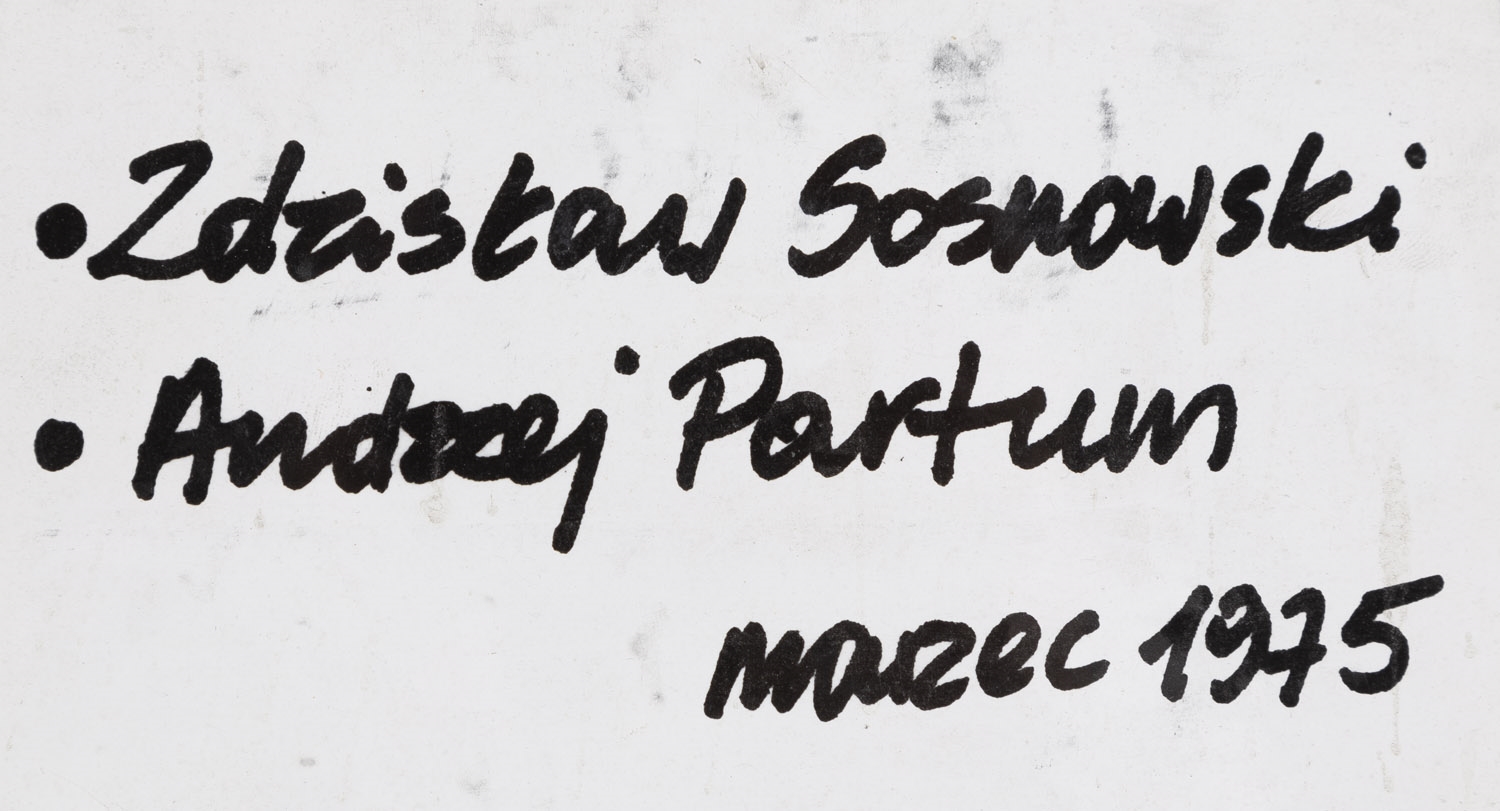 • Zdzisław Sosnowski
• Andrzej Partum
marzec 1975